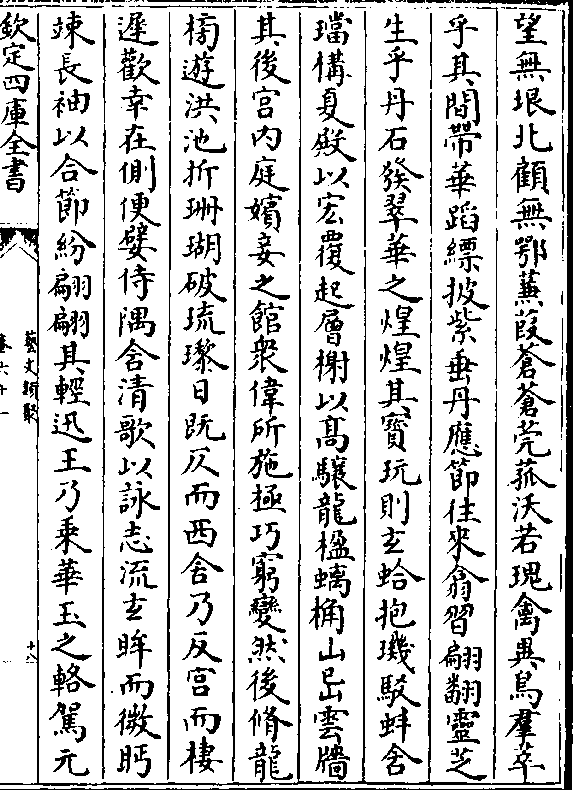 望無垠北顧無鄂蒹葭蒼蒼莞菰沃若瑰禽異鳥羣萃
乎其間帶華蹈縹披紫垂丹應節往來翕習翩翻靈芝
生乎丹石發翠華之煌煌其寳玩則𤣥蛤抱璣駁蚌含
璫備夏殿以宏覆起層榭以髙驤龍楹螭桷山岊雲牆
其後宫内庭嬪妾之館衆偉所施極巧窮變然後脩龍
榜遊洪池折珊瑚破琉瓈日既仄而西舍乃反宫而棲
遲歡幸在側便嬖侍隅含清歌以詠志流𤣥眸而微眄
竦長袖以合節紛翩翩其輕迅王乃乘華玉之輅駕元
欽定四庫全書
藝文類聚
卷六十一
十八